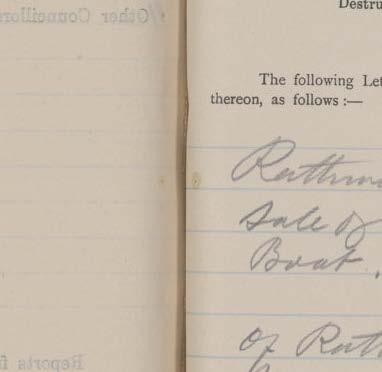 Other Councillors
Reports f
Destru
The following Let
thereon, as follows :—
Rathm
Sale of
Boat.
of Rath